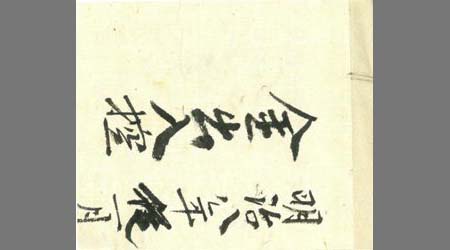 明治八年第一月
金出入控